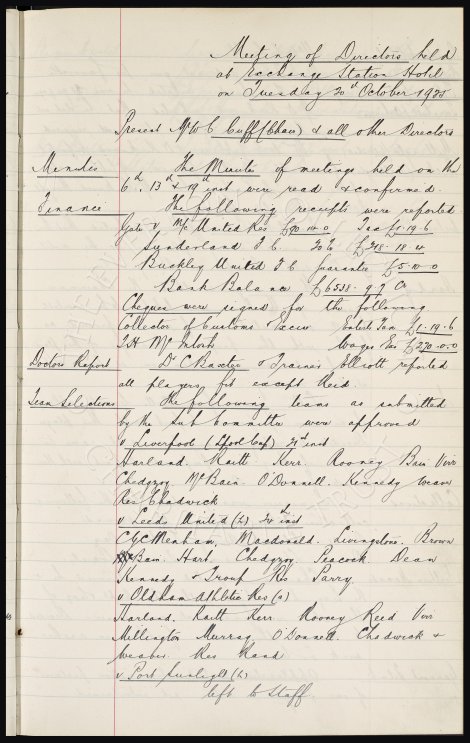 Meeting of Directors held
at Exchange Station Hotel
on Tuesday 20th October 1925
Present Mr W C Cuff (Chair) & all other Directors
Minutes The Minutes of meetings held on the
6th, 13th & 19th inst were read & confirmed.
Finance The following receipts were reported
Gate v Mc United Res £70-10-0 Tax £1-19-6
Sunderland F C. £218-18-
Buckley United F C Guarantee £5-10-0
Bank Balance £6538-9-7 Cr
Cheques were signed for the following
Collector of Customs & Excise Entertt Tax £1-19-6
J H McIntosh Wages &c £270-0-0
Doctors Report Dr C Baxter & Trainer Elliott reported
all players fit except Reid.
Team Selections The following teams as submitted
by the sub Committee were approved
v Liverpool (Lpool Cup) 21st inst
Harland. Raitt. Kerr. Rooney Bain Virr
Chedgzoy McBain. O'Donnell. Kennedy Weaver
Res Chadwick
v Leeds United (h) 24th inst
Menham, Macdonald. Livingstone. Brown
Bain. Hart. Chedgzoy. Peacock. Dean
Kennedy & Troup Res Parry.
v Oldham Athletic Res (a)
Harland. Raitt Kerr. Rooney Reed Virr
Millington Murray O'Donnell. Chadwick &
Weaver. Res Rand
v Port Sunlight (h)
left to Staff.